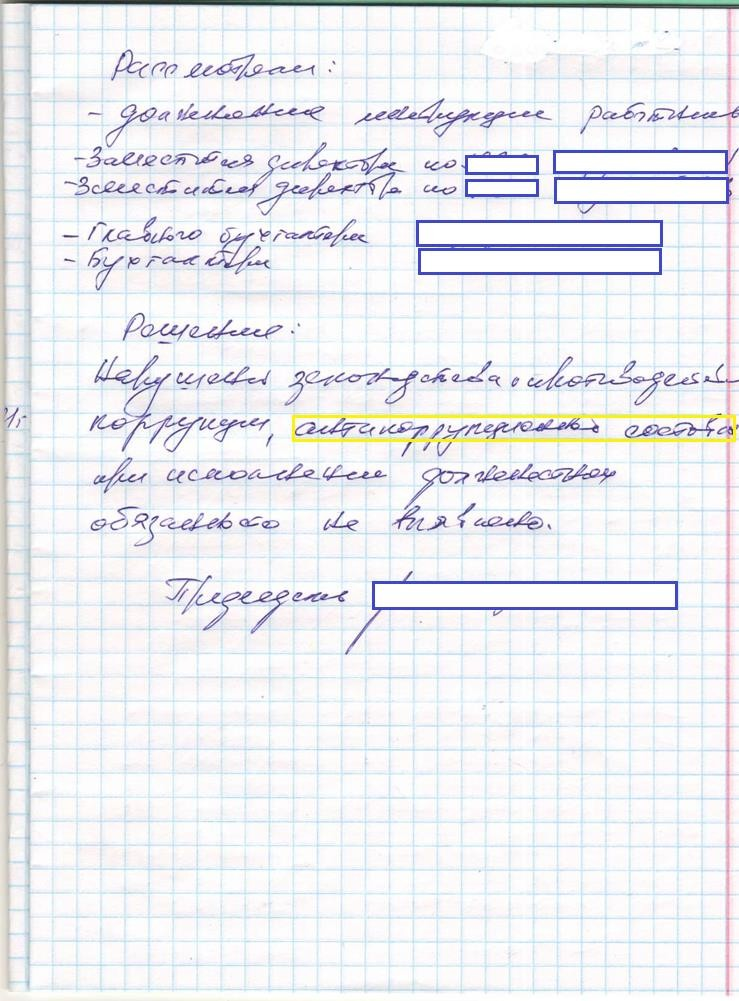 Рассмотрели:
- должностные инструкции работников
- Заместителя директора по
- Заместителя директора по
- Главного бухгалтера
- Бухгалтера
Решение:
Нарушений законодательства о противодействии
коррупции, антикоррупционных
при исполнении должностных
обязанностей не выявлено.
Председатель